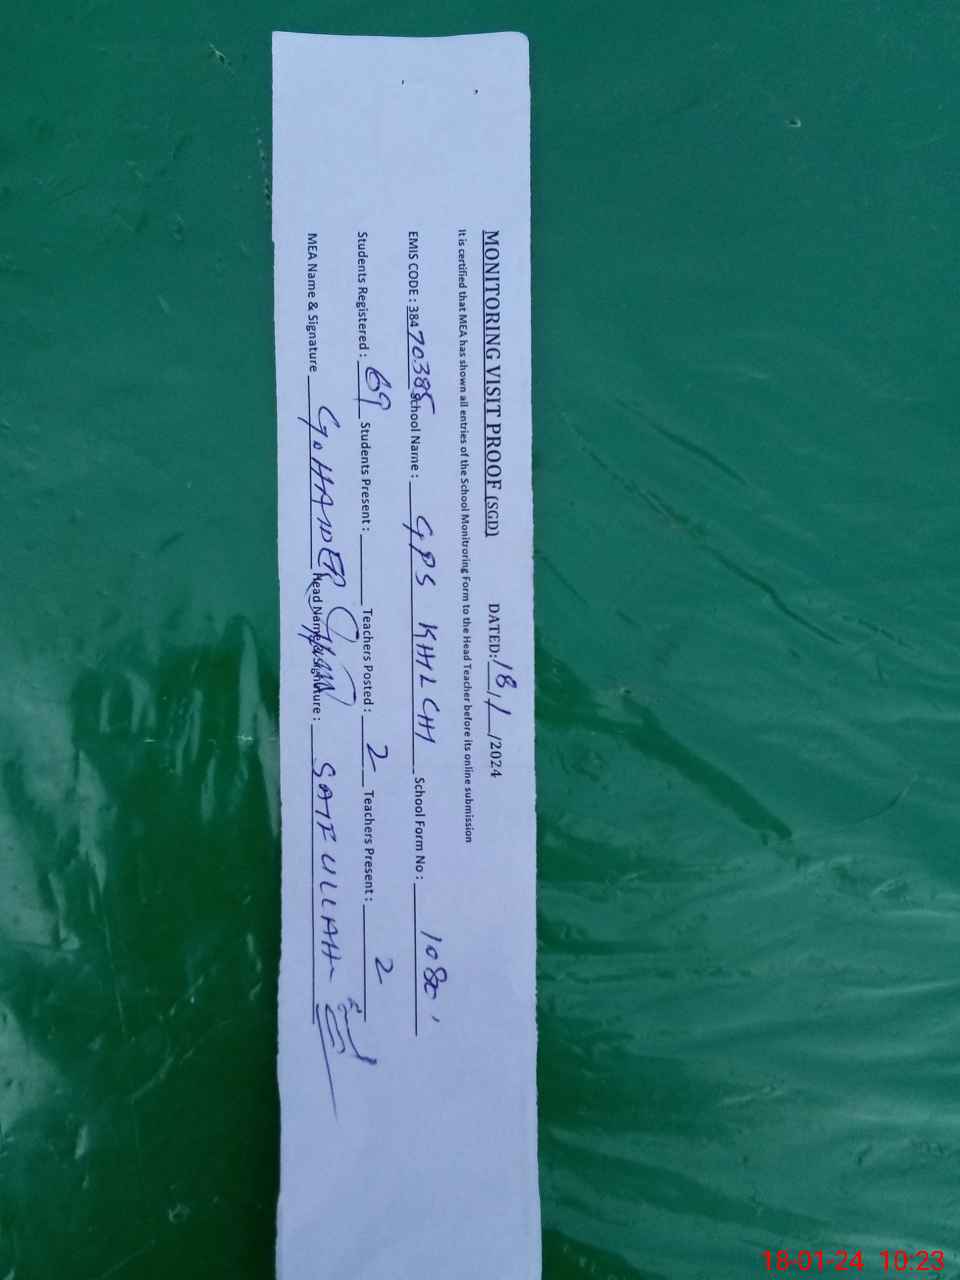 MONITORING VISIT PROOF (SGD) DATED: 18/1/2024
It is certified that MEA has shown all entries of the School Monitroring Form to the Head Teacher before its online submission
EMIS CODE : 38470385 School Name : GPS KHILCHI School Form No : 1080
Students Registered : 69 Students Present : Teachers Posted : 2 Teachers Present : 2
MEA Name & Signature G. HAIDER Head Name & Signature : SAIF ULLAH
18-01-24 10:23